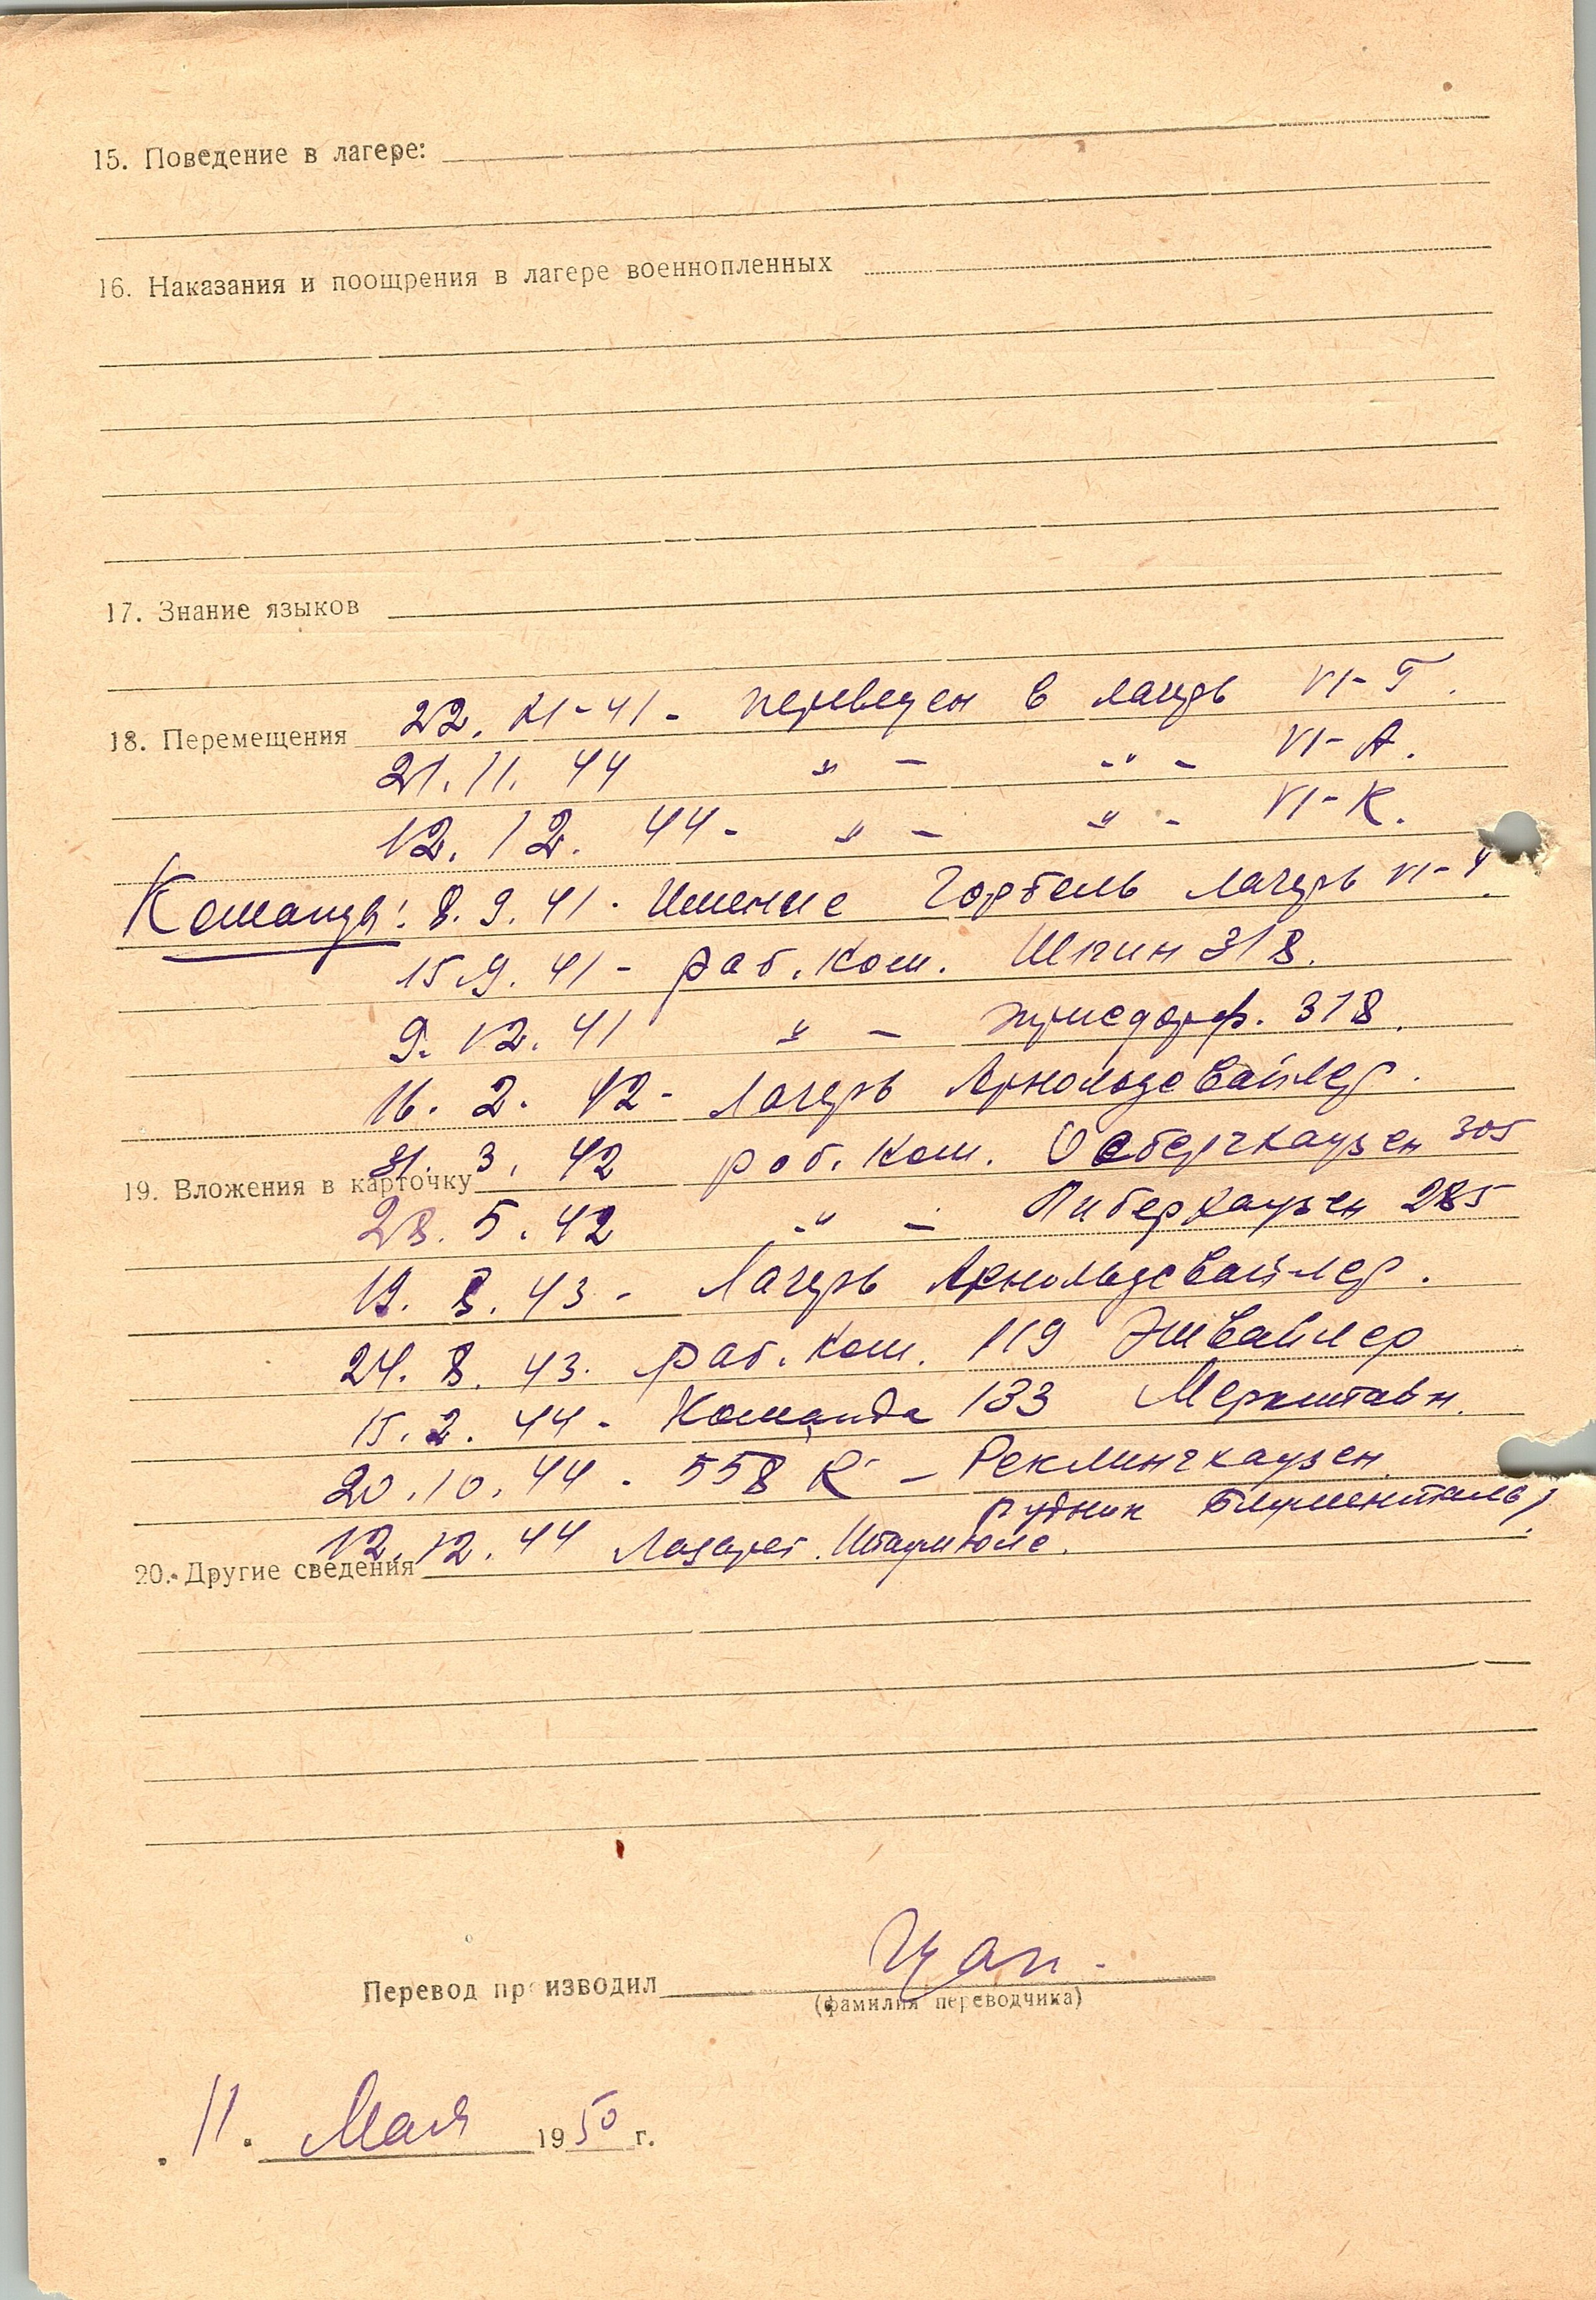 15. Поведение в лагере:
16. Наказания и поощрения в лагере военнопленных
17. Знание языков
18. Перемещения 22. XI-41 - переведен в лагерь VI-Г.
21. 11. 44 " - " - VI-А.
12. 12. 44 - " - " - VI-К.
Команды: 8. 9. 41 - Имение лагерь VI-
15.9. 41 - раб. ком. 318.
9. 12. 41 " - 318.
16. 2. 42 - Лагерь Арнольдсвайлер.
31. 3. 42 раб. ком. Осбергхаузен 305
19. Вложения в карточку
28. 5. 42 " - Либерхаузен 285
19. 8. 43 - Лагерь Арнольдсвайлер.
24. 8. 43. раб. ком. 119 Эшвайлер
15. 2. 44 - Команда 133 Меркштайн.
20. 10. 44 - 558 R - Реклингхаузен.
рудник Блументаль
12. 12. 44 Лазарет. Штаумюле.
20. Другие сведения
Перевод производил Цап.
(фамилия переводчика)
11. Мая 1950 г.